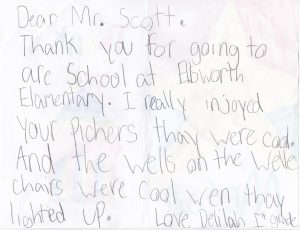 Dear Mr. Scott.
Thank you for going to
are School at Ebworth
Elamentary. I really injoyed
your Pichers thay were cool.
And the wells on the wele
chars were cool wen thay
lighted up. Love Delilah 1st grade